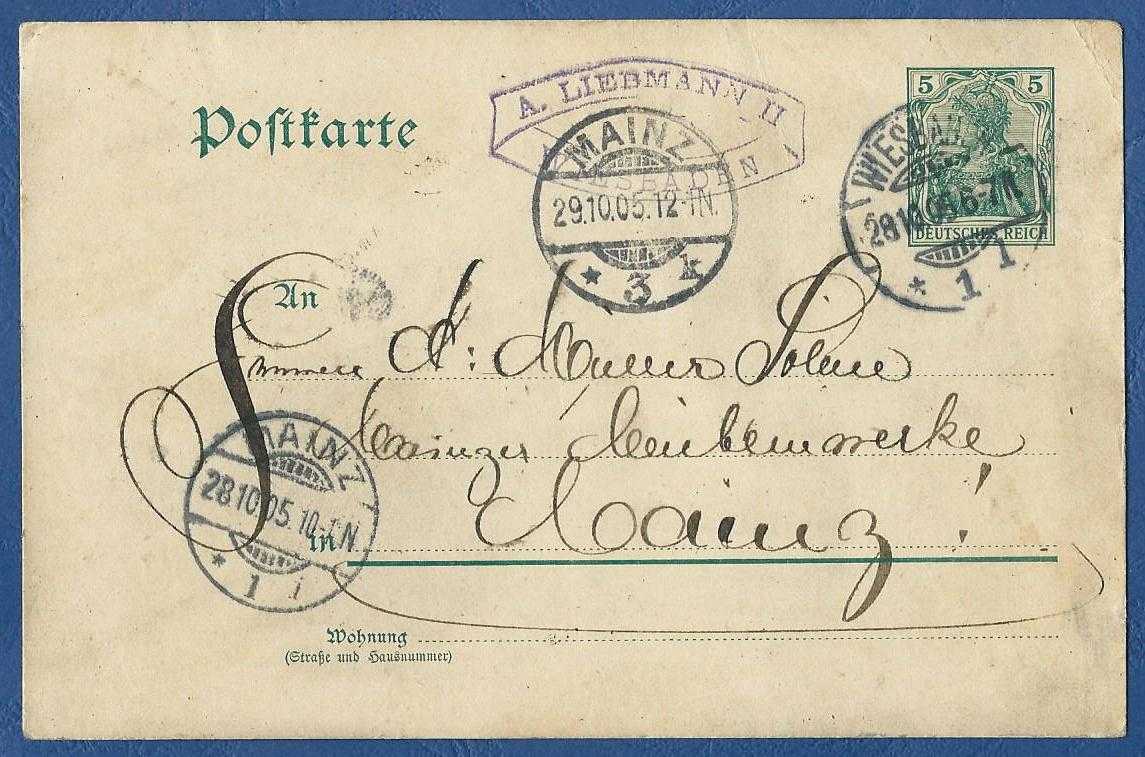 Postkarte
A. LIEBMANN II
WIESBADEN
5 5
DEUTSCHES REICH
WIESBADEN
28.10.05.6-7N.
* 1 i
MAINZ
29.10.05.12-1N.
* 3 k
An
A: Müllers Söhne
Mainzer
Mainz!
in
MAINZ
28.10.05.10-11N
* 1 i
Wohnung
(Straße und Hausnummer)